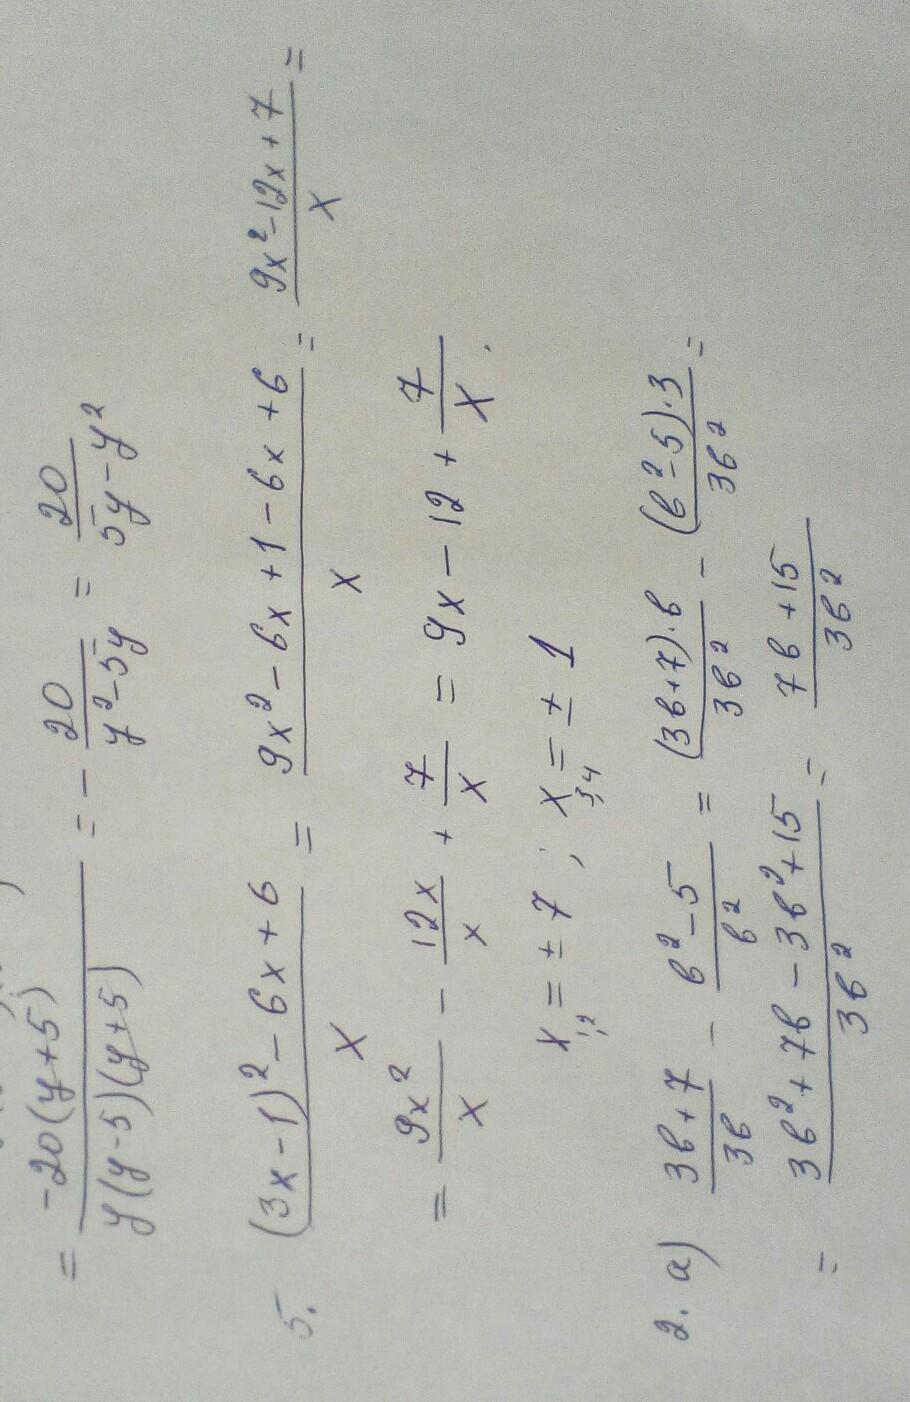 = -20(y+5) / y(y-5)(y+5) = - 20 / y²-5y = 20 / 5y-y²
5. (3x-1)² - 6x + 6 / x = 9x² - 6x + 1 - 6x + 6 / x = 9x² - 12x + 7 / x =
= 9x² / x - 12x / x + 7 / x = 9x - 12 + 7 / x .
x₁,₂ = ± 7 ; x₃,₄ = ± 1
2. а) 3в+7 / 3в - в²-5 / в² = (3в+7)·в / 3в² - (в²-5)·3 / 3в² =
= 3в² + 7в - 3в² + 15 / 3в² = 7в + 15 / 3в²